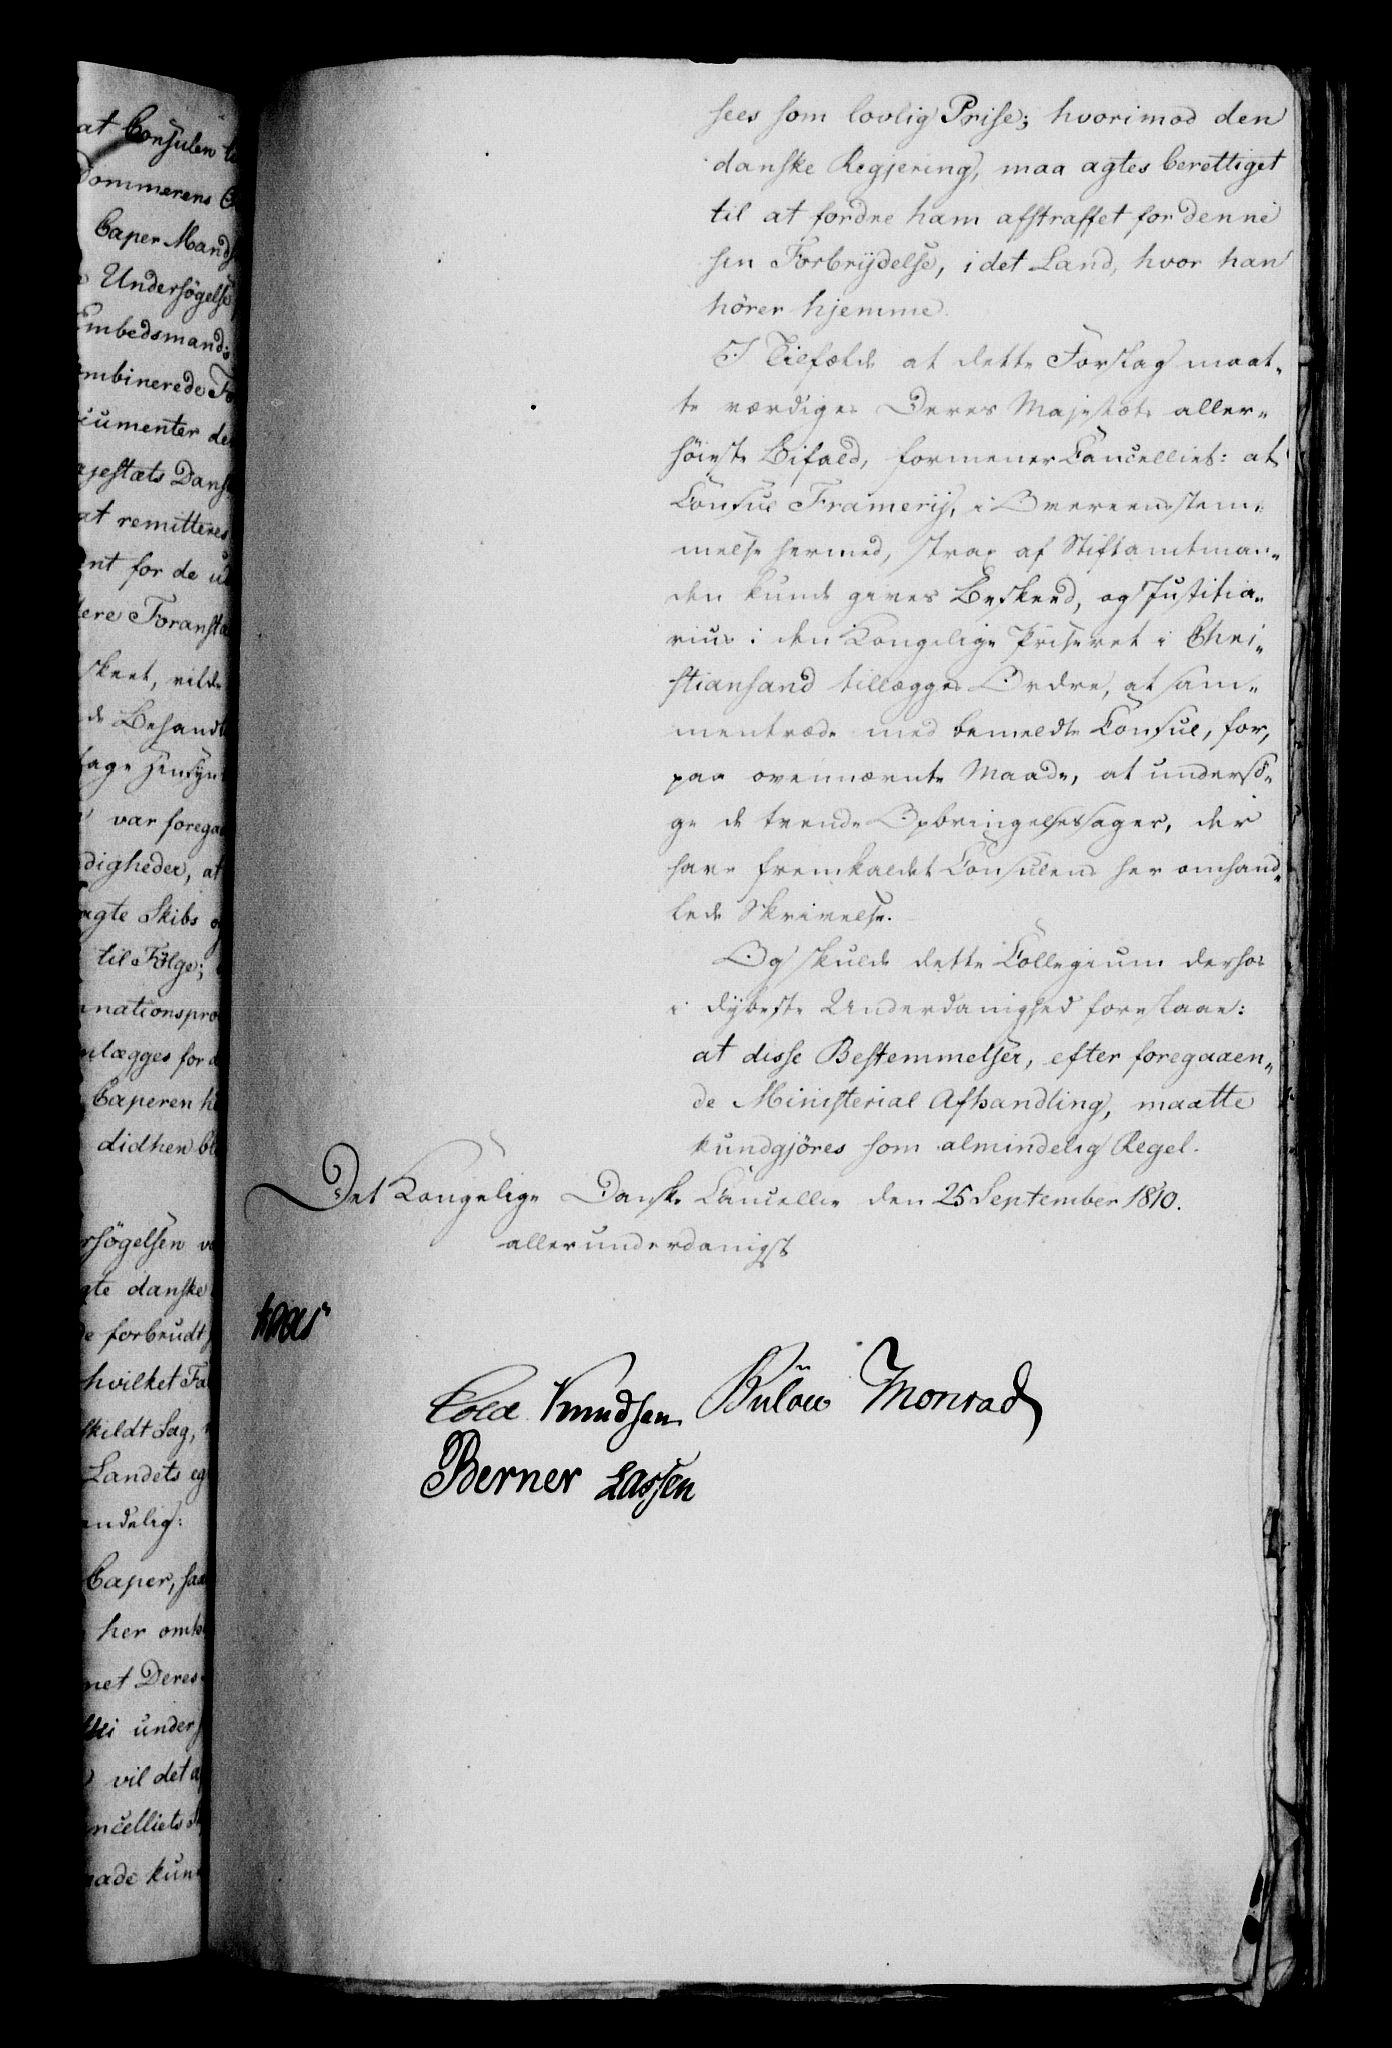 at Consulen
Dommerens
Caper Mands
Undersøgelse
Embedsmands
mbinerede
cumenter de
ajestæts Dans
at remitteres
ent for de
dere Foransta
skeet, vilde
de Behandl
tage Hensyn
var foregaa
digheder, at
agte Skibs
til Følge;
nationspro
nlægges for
Caperen
didhen
rsøgelsen
gte danske
de forbrudt
hvilket
skildt Sag,
Landets eg
endelig:
Caper, saa
her omh
net Deres
under
vil det
ncelliets
aade kun
sees som lovlig Prise; hvorimod den
danske Regjering, maa agtes berettiget
til at fordre ham afstraffet for denne
sin Forbrydelse, i det Land, hvor han
hører hjemme.
I Tilfælde at dette Forslag maat„
te værdiges Deres Majestæts aller„
høieste Bifald, formener Cancelliet: at
Consul Framery, i Overeensstem„
melse hermed, strax af Stiftamtman„
den kunde gives Beskeed, og Justitia„
rius i den Kongelige Priseret i Chri„
stiansand tillægges Ordre, at sam„
mentræde med bemeldte Consul, for,
paa ovennævnte Maade, at undersø„
ge de trende Opbringelsessager, der
have fremkaldet Consulens her omhand„
lede Skrivelse.
Og skulde dette Collegium derhos
i dybeste Underdanighed forestaae:
at disse Bestemmelser, efter foregaaen„
de Ministerial Afhandling, maatte
kundgjøres som almindelig Regel.
Det Kongelige Danske Cancellie den 25 September 1810.
allerunderdanigst
Cold Knudsen Bülow Monrad
Berner Lassen